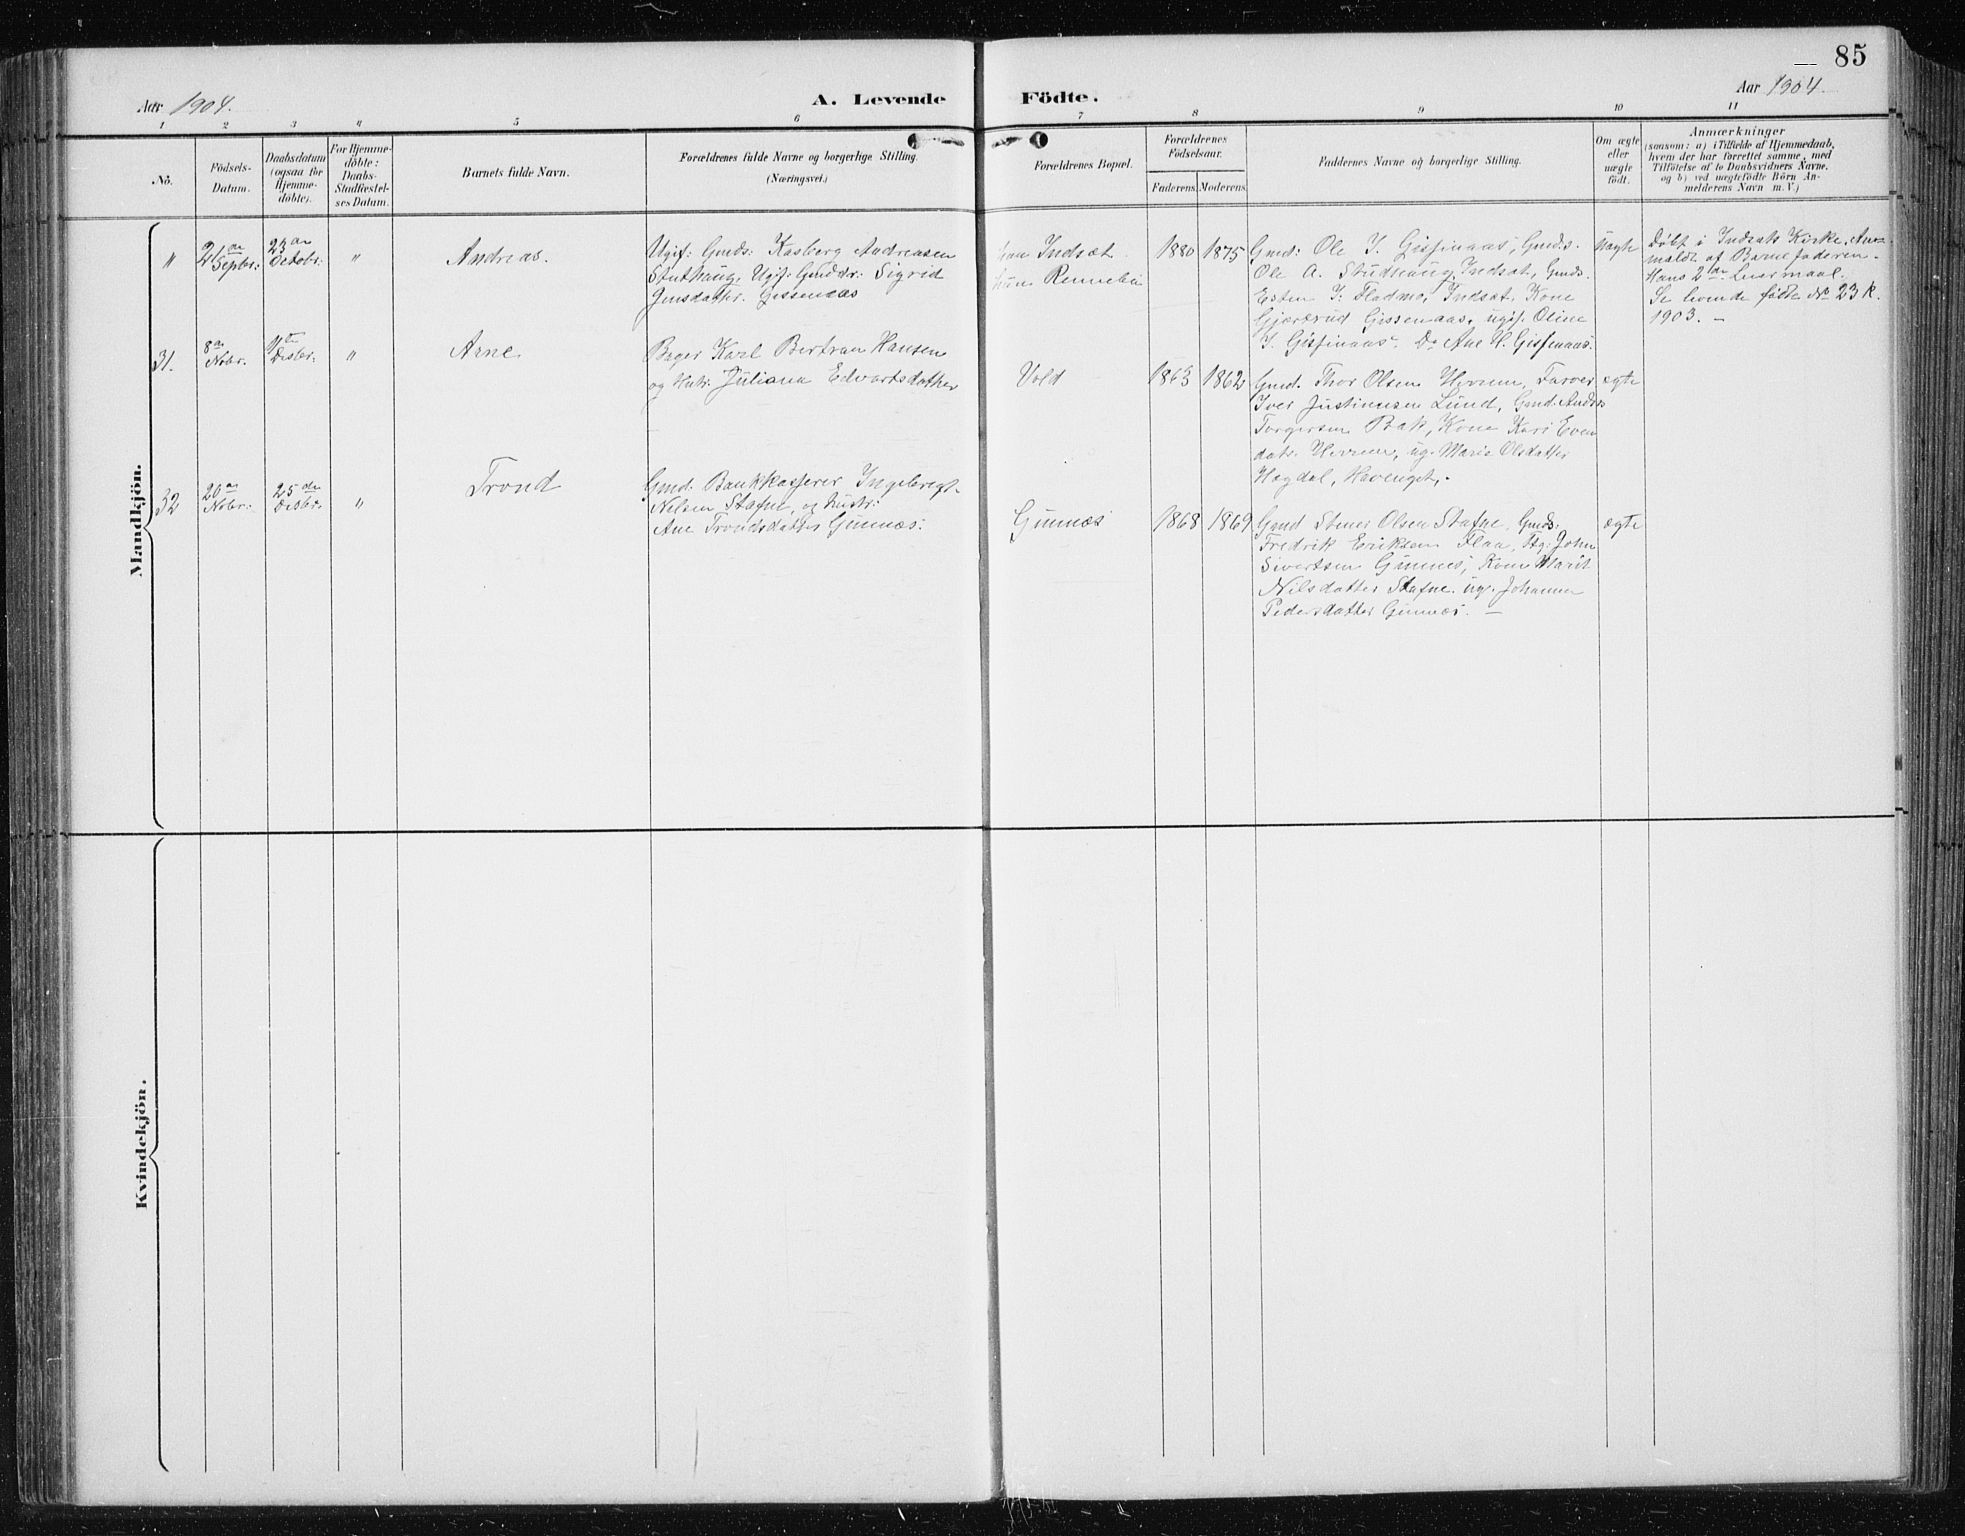 85
Aar 1904.
A. Levende
Födte.
Aar 1904.
1
2
3
4
5
6
7
8
9
10
11
No.
Födsels-
Datum.
Daabsdatum
(ogsaa for
Hjemme-
döbte).
For Hjemme-
döbte:
Daabs-
Stadfæstel-
ses Datum.
Barnets fulde Navn.
Forældrenes fulde Navne og borgerlige Stilling.
(Næringsvei.)
Forældrenes Bopæl.
Forældrenes
Födselsaar.
Faderens.
Moderens.
Faddernes Navne og borgerlige Stilling.
Om ægte
eller
uægte
födt.
Anmærkninger
(saasom: a) i Tilfælde af Hjemmedaab,
hvem der har forrettet samme, med
Tilföielse af to Daabsvidners Navne.
og b) ved uægtefödte Börn An-
melderens Navn m. V.)
Mandkjön.
"
Septbr:
23
Octobr:
"
Andreas.
Ugif: Gmds: Kasberg Andreasen
Stuthaug, Ugif: Gmddr: Sigrid
Jensdatter Gissenaas
Indsæt
hun Rennebu
1880
1875
Gmd: Ole J. Gissinaas, Gmds.
Ole A. Studhaug, Indsæt, Gmds.
Esten J. Fladmo, Indsæt, Kone
Gjærtrud Gissenaas, ugif. Oline
J. Gissinaas. Do Ane H. Gissinaas.
Uægte
Døbt i Indsæts Kirke. An-
meldt af Barnefaderen.
Hans 2de Leiermaal.
Se levende fødte No 23 K.
1903. –
31.
8
Nobr.
Desbr:
"
Arne
Bager Karl Bertran Hansen
og Hstr. Juliana Edvartsdatter
Vold
1863
1862
Gmd. Thor Olsen Hevrem, Farver
Iver Justinusen Lund, Gmd. Anders
Torgersen Bak, Kone Kari Even
datr. Hevrem, ug. Marie Olsdatter
Hagdal, Havenget.
ægte
32
20
Nobr:
25 de
Desbr.
"
Trond
Gmd. Bankkasserer Ingebregt
Nilsen Stafne, og hustr:
Ane Trondsdatter Gunnes:
Gunnes
1868
1869
Gmd Stener Olsen Stafne, Gmds:
Fredrik Eriksen Flaa, John
Sivertsen Gunnes, Kone Marit
Nilsdatter Stafne. ug. Johanna
Pedersdatter Gunnes. –
ægte
Kvindekjön.